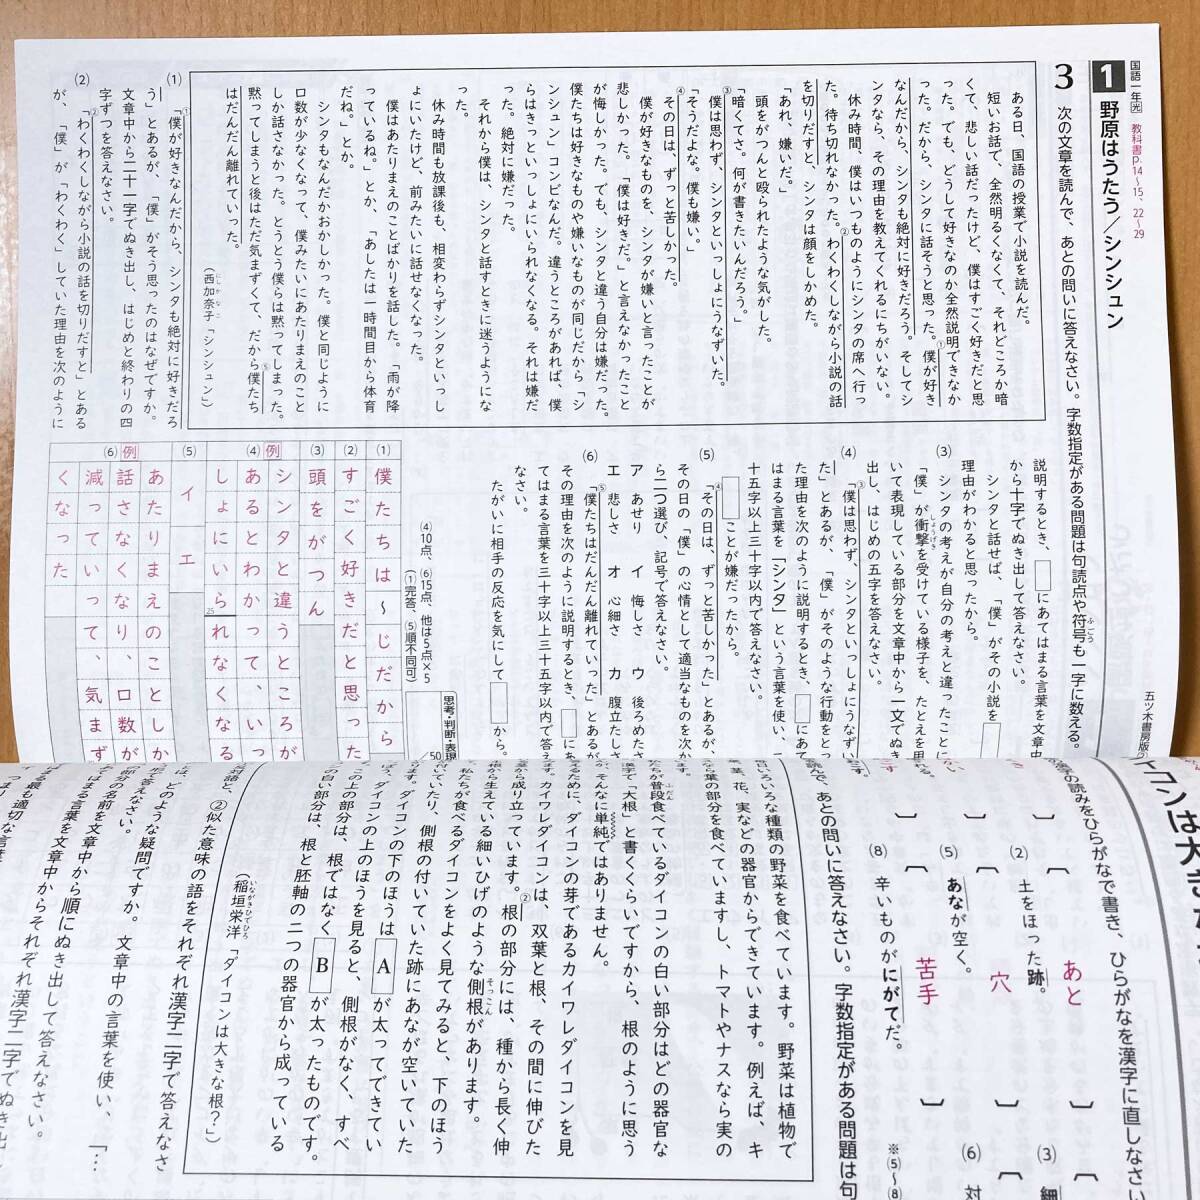 国語一年光 教科書p.14〜15、22〜29
1 野原はうたう／シンシュン
3 次の文章を読んで、あとの問いに答えなさい。字数指定がある問題は句読点や符号も一字に数える。
ある日、国語の授業で小説を読んだ。
短いお話で、全然明るくなくて、それどころか暗
くて、悲しい話だったけど、僕はすごく好きだと思
った。でも、どうして好きなのか全然説明できなか
った。だから、シンタに話そうと思った。①僕が好き
なんだから、シンタも絶対に好きだろう。そしてシ
ンタなら、その理由を教えてくれるにちがいない。
休み時間、僕はいつものようにシンタの席へ行っ
た。待ち切れなかった。②わくわくしながら小説の話
を切りだすと、シンタは顔をしかめた。
「あれ、嫌いだ。」
頭をがつんと殴られたような気がした。
「暗くてさ。何が書きたいんだろう。」
③僕は思わず、シンタといっしょにうなずいた。
「そうだよな。僕も嫌い。」
④その日は、ずっと苦しかった。
僕が好きなものを、シンタが嫌いと言ったことが
悲しかった。「僕は好きだ。」と言えなかったこと
が悔しかった。でも、シンタと違う自分は嫌だった。
僕たちは好きなものや嫌いなものが同じだから「シ
ンシュン」コンビなんだ。違うところがあれば、僕
らはきっといっしょにいられなくなる。それは嫌だ
った。絶対に嫌だった。
それから僕は、シンタと話すときに迷うようにな
った。
休み時間も放課後も、相変わらずシンタといっし
ょにいたけど、前みたいに話せなくなった。
僕はあたりまえのことばかりを話した。「雨が降
っているね。」とか、「あしたは一時間目から体育
だね。」とか。
シンタもなんだかおかしかった。僕と同じように
口数が少なくなって、僕みたいにあたりまえのこと
しか話さなかった。とうとう僕らは黙ってしまった。
黙ってしまうと後はただ気まずくて、だから⑤僕たち
はだんだん離れていった。
（西加奈子「シンシュン」）
(1) 「①僕が好きなんだから、シンタも絶対に好きだろ
う」とあるが、「僕」がそう思ったのはなぜですか。
文章中から二十一字でぬき出し、はじめと終わりの四
字ずつを答えなさい。
(2) 「②わくわくしながら小説の話を切りだすと」とある
が、「僕」が「わくわく」していた理由を次のように
説明するとき、□にあてはまる言葉を文章中
から十字でぬき出して答えなさい。
シンタと話せば、「僕」がその小説を□
理由がわかると思ったから。
(3) シンタの考えが自分の考えと違ったことに
「僕」が衝撃を受けている様子を、たとえを用
いて表現している部分を文章中から一文でぬき
出し、はじめの五字を答えなさい。
(4) 「③僕は思わず、シンタといっしょにうなずい
た」とあるが、「僕」がそのような行動をとっ
た理由を次のように説明するとき、□にあて
はまる言葉を「シンタ」という言葉を使い、二
十五字以上三十字以内で答えなさい。
□ことが嫌だったから。
(5) 「④その日は、ずっと苦しかった」とあるが、
その日の「僕」の心情として適当なものを次か
ら二つ選び、記号で答えなさい。
ア あせり イ 悔しさ ウ 後ろめたさ
エ 悲しさ オ 心細さ カ 腹立たしさ
(6) 「⑤僕たちはだんだん離れていった」とあるが、
その理由を次のように説明するとき、□にあ
てはまる言葉を三十字以上三十五字以内で答え
なさい。
たがいに相手の反応を気にして□から。
④10点、⑥15点、他は5点×5
（①完答、⑤順不同可）
思考・判断・表現
／50
(1) 僕たちは〜じだから
(2) すごく好きだと思った
(3) 頭をがつん
(4) 例 シンタと違うところが
あるとわかって、いっ
しょにいられなくなる
25
(5) イ エ
(6) 例 あたりまえのことしか
話さなくなり、口数が
減っていって、気まず
くなった
五ツ木書房版
の読みをひらがなで書き、ひらがなを漢字に直しなさい
(2) 土をほった跡。
あと
(3) 細
(5) あなが空く。
穴
(6) 対
(8) 辛いものがにがてだ。
苦手
※⑤〜⑧
読んで、あとの問いに答えなさい。字数指定がある問題は句
いろいろな種類の野菜を食べています。野菜は植物で
葉、茎、花、実などの器官からできています。例えば、キ
葉の部分を食べていますし、トマトやナスなら実の
たちが普段食べているダイコンの白い部分はどの器官な
漢字で「大根」と書くくらいですから、根のように思う
、そんなに単純ではありません。
えるために、ダイコンの芽であるカイワレダイコンを見
す。カイワレダイコンは、双葉と根、その間に伸びた
から成り立っています。②根の部分には、種から長く伸
根から生えている細いひげのような側根があります。
、私たちが食べるダイコンをよく見てみると、下のほう
付いていたり、側根の付いていた跡にあなが空いていた
ます。ダイコンの下のほうは A が太ってできてい
、ダイコンの上のほうを見ると、側根がなく、すべ
この上の部分は、根ではなく B が太ったものです。
の白い部分は、根と胚軸の二つの器官から成っている
（稲垣栄洋「ダイコンは大きな根？」）
反対語と、②似た意味の語をそれぞれ漢字二字で答えなさ
は、どのような疑問ですか。文章中の言葉を使い、「…
で答えなさい。
てはまる言葉を文章中からそれぞれ漢字二字でぬき出し
の名前を文章中から順にぬき出して答えなさい。